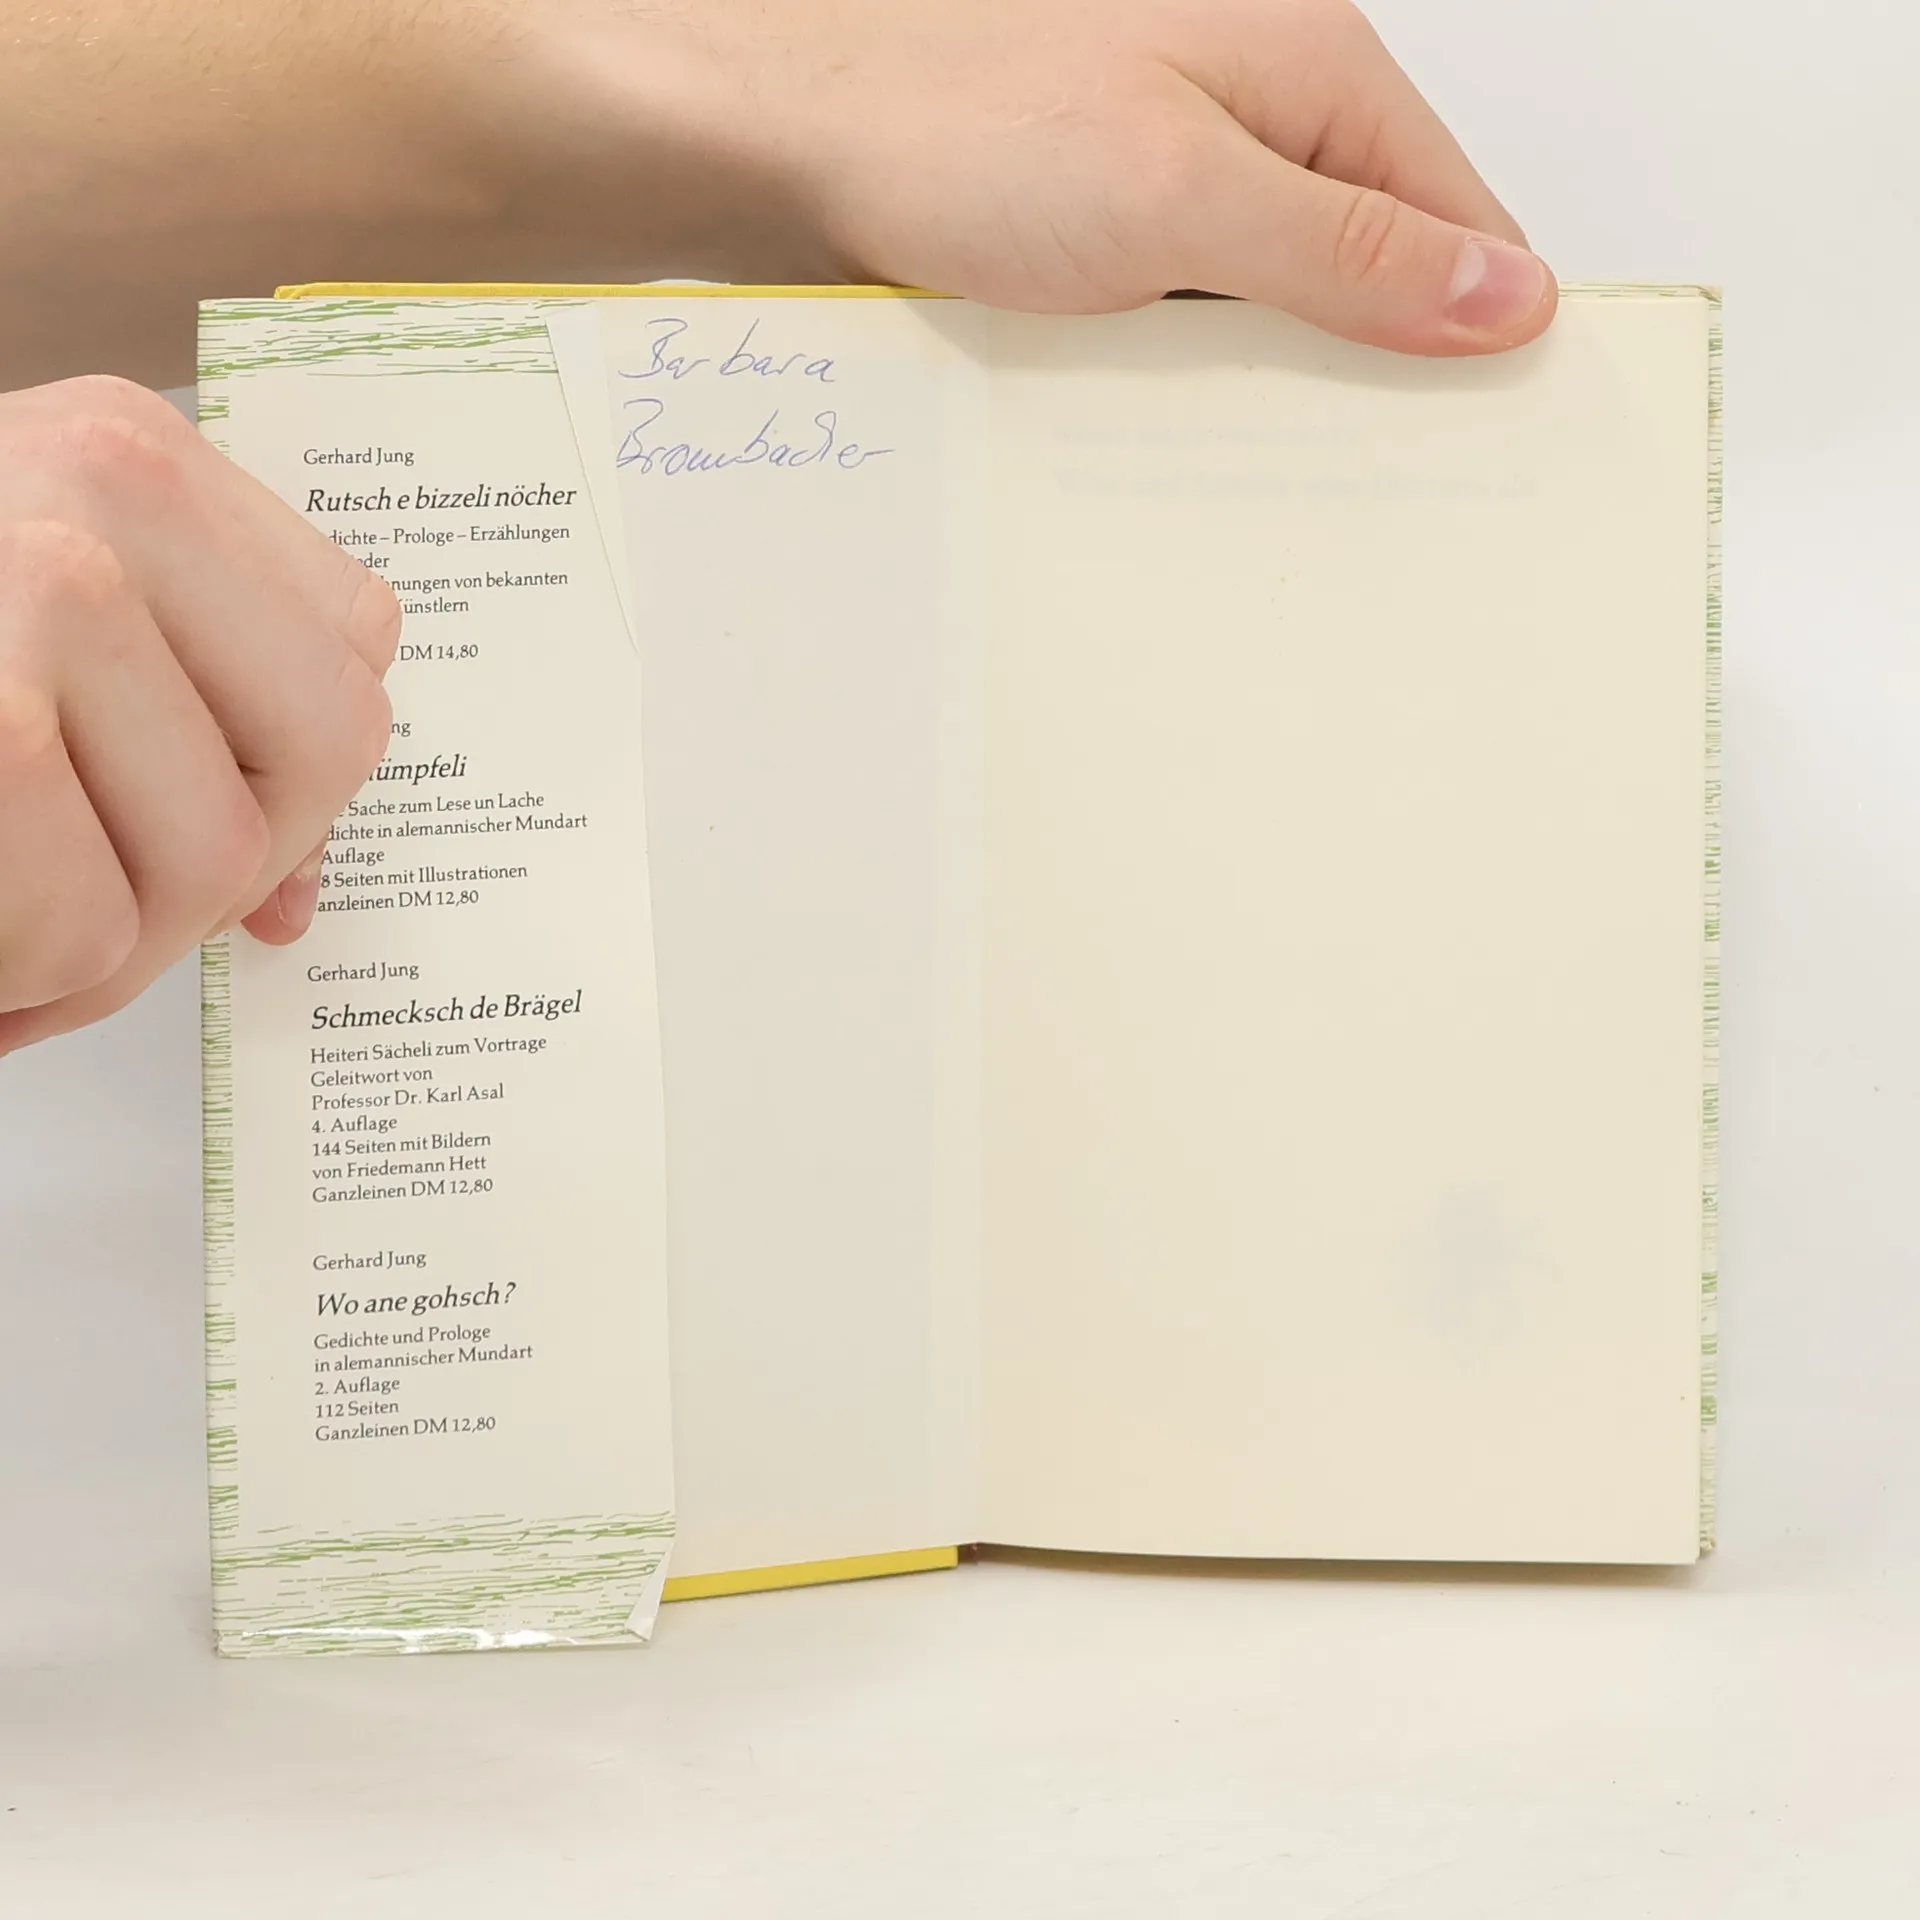 Barbara
Brombacher
Gerhard Jung
Rutsch e bizzeli nöcher
– Prologe – Erzählungen
von bekannten
DM 14,80
Sache zum Lese un Lache
in alemannischer Mundart
Auflage
Seiten mit Illustrationen
DM 12,80
Gerhard Jung
Schmecksch de Brägel
Heiteri Sächeli zum Vortrage
Geleitwort von
Professor Dr. Karl Asal
4. Auflage
144 Seiten mit Bildern
von Friedemann Hett
Ganzleinen DM 12,80
Gerhard Jung
Wo ane gohsch?
Gedichte und Prologe
in alemannischer Mundart
2. Auflage
112 Seiten
Ganzleinen DM 12,80